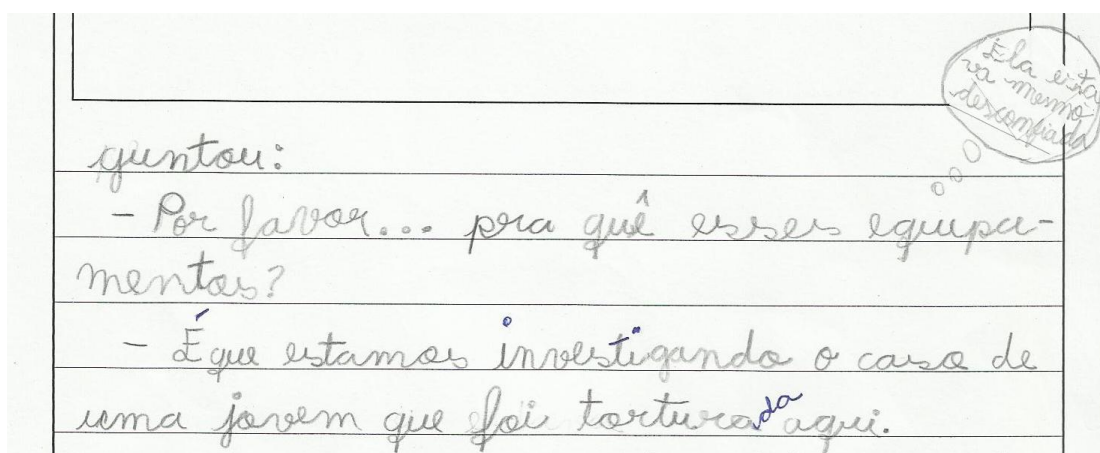 Ela esta
va mesmo
desconfiada
guntou:
- Por favor... pra quê esses equipa-
mentos?
- É que estamos investigando o caso de
uma jovem que foi torturada aqui.